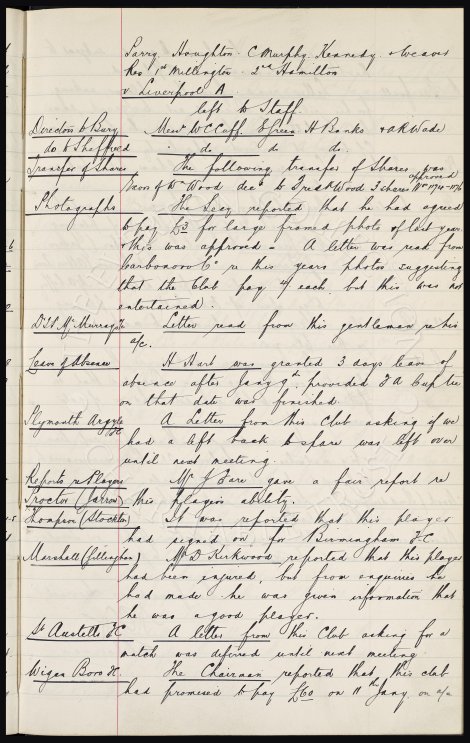 Parry. Houghton. C Murphy. Kennedy. & Weaver
Res 1st Millington. 2nd Hamilton
v Liverpool A
left to Staff.
Directors to Bury Messrs W C Cuff. E Green H Banks & A R Wade
do to Sheffield . do do do.
Transfer of Shares The following transfer of Shares was approved
Exors of Wood decd to Wood 3 shares
Photographs The Secy reported that he had agreed
to pay £3 for large framed photo of last year.
& this was approved = A letter was read from
Carbonoro Co re this years photos suggesting
that the Club pay of each but this was not
entertained.
Dr McMurray Letter read from this gentleman re his
a/c.
Leave of Absence H Hart was granted 3 days leave of
absence after Jany 9th provided F A Cup tie
on that date was finished.
Plymouth Argyle FC A Letter from this Club asking if we
had a left back to spare was left over
until next meeting.
Reports re Players Mr J Fare gave a fair report re
Proctor (Jarrow) this players ability.
Thompson (Stockton) It was reported that this player
had signed on for Birmingham FC
Marshall (Gillingham) Mr D Kirkwood reported that this player
had been injured, but from enquiries he
had made he was given information that
he was a good player.
St Austells FC A letter from this Club asking for a
match was deferred until next meeting
Wigan Boro FC. The Chairman reported that this club
had promised to pay £60 on 11th Jany. on a/c